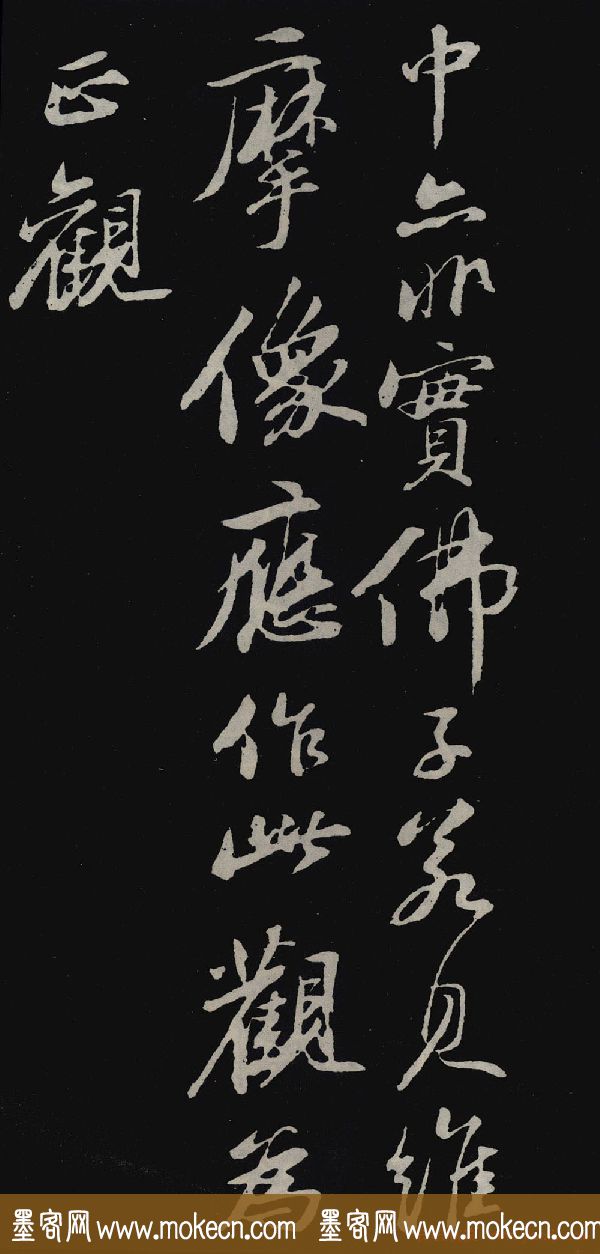 中亦非實佛子若見維
摩像應作此觀為
正觀
墨客网 www.mokecn.com 墨客网 www.mokecn.com